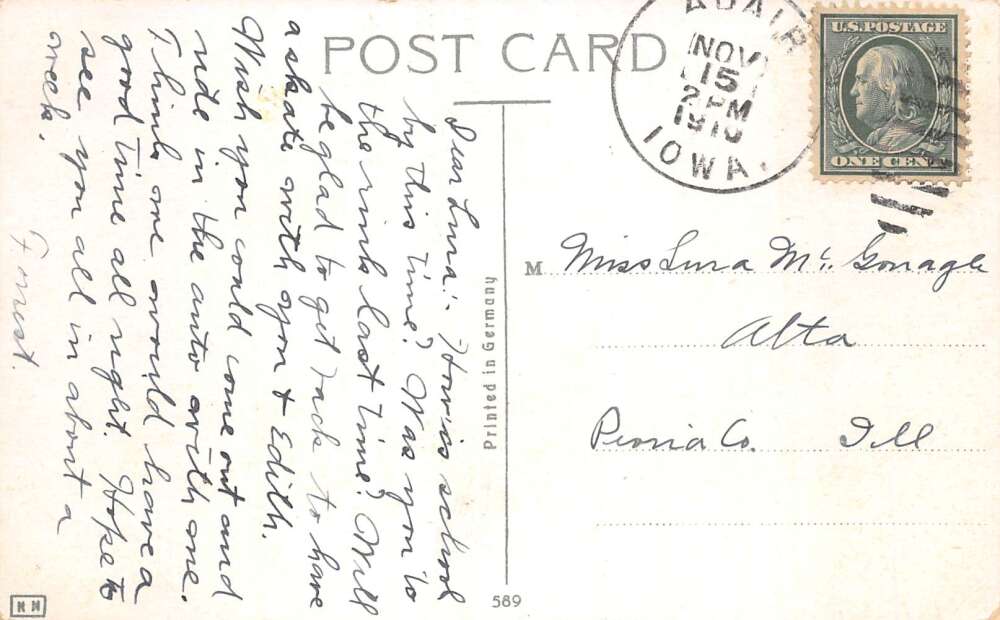 POST CARD
ADAIR
NOV
15
2 PM
1910
IOWA.
U.S. POSTAGE
ONE CENT
Dear Lura:- How's school
by this time? Was you to
the rink last time? Will
be glad to get back to have
a skate with you & Edith.
Wish you could come out and
ride in the auto with me.
Think we would have a
good time all right. Hope to
see you all in about a
week.
Forrest.
Printed in Germany
M Miss Lura Mc. Gonagle
Alta
Peoria Co. Ill
589